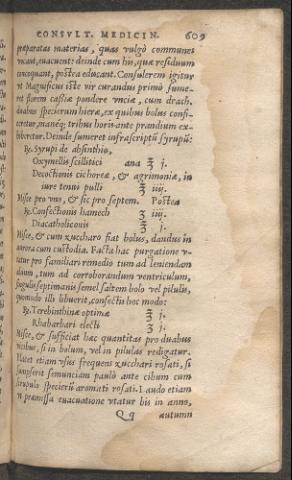 CONSVLT. MEDICIN. 609
præparatas materias, quas vulgò communes
vocant, euacuent: deinde cum his, quæ residuum
concoquant, postea educant. Consulerem igitur
vt Magnificus iste vir curandus primò sume-
ret florem cassiæ pondere vnciæ, cum drach.
duabus specierum hieræ, ex quibus bolus confi-
ceretur, manéq; tribus horis ante prandium ex-
hiberetur. Deinde sumeret infrascriptũ syrupũ:
℞. Syrupi de absinthio,
Oxymellis scillitici ana ℥ j.
Decoctionis cichoreæ, & agrimoniæ, in
iure tenui pulli ℥ iiij.
Misce pro vno, & sic pro septem. Postea
℞. Confectionis hamech ʒ iiij.
Diacatholiconis ℥ j.
Misce, & cum zuccharo fiat bolus, dandus in
aurora cum custodia. Facta hac purgatione v-
tatur pro familiari remedio tum ad leniendam
aluum, tum ad corroborandum ventriculum,
singulis septimanis semel saltem bolo vel pilulis,
quomodo illi libuerit, confectis hoc modo:
℞. Terebinthinæ optimæ ℥ j.
Rhabarbari electi ʒ j.
Misce, & sufficiat hæc quantitas pro duabus
vicibus, si in bolum, vel in pilulas redigatur.
Placet etiam vsus frequens zucchari rosati, si
sumpserit semunciam paulò ante cibum cum
scrupulo specierũ aromati rosati. Laudo etiam
vt præmissa euacuatione vtatur bis in anno,
Qq autumn